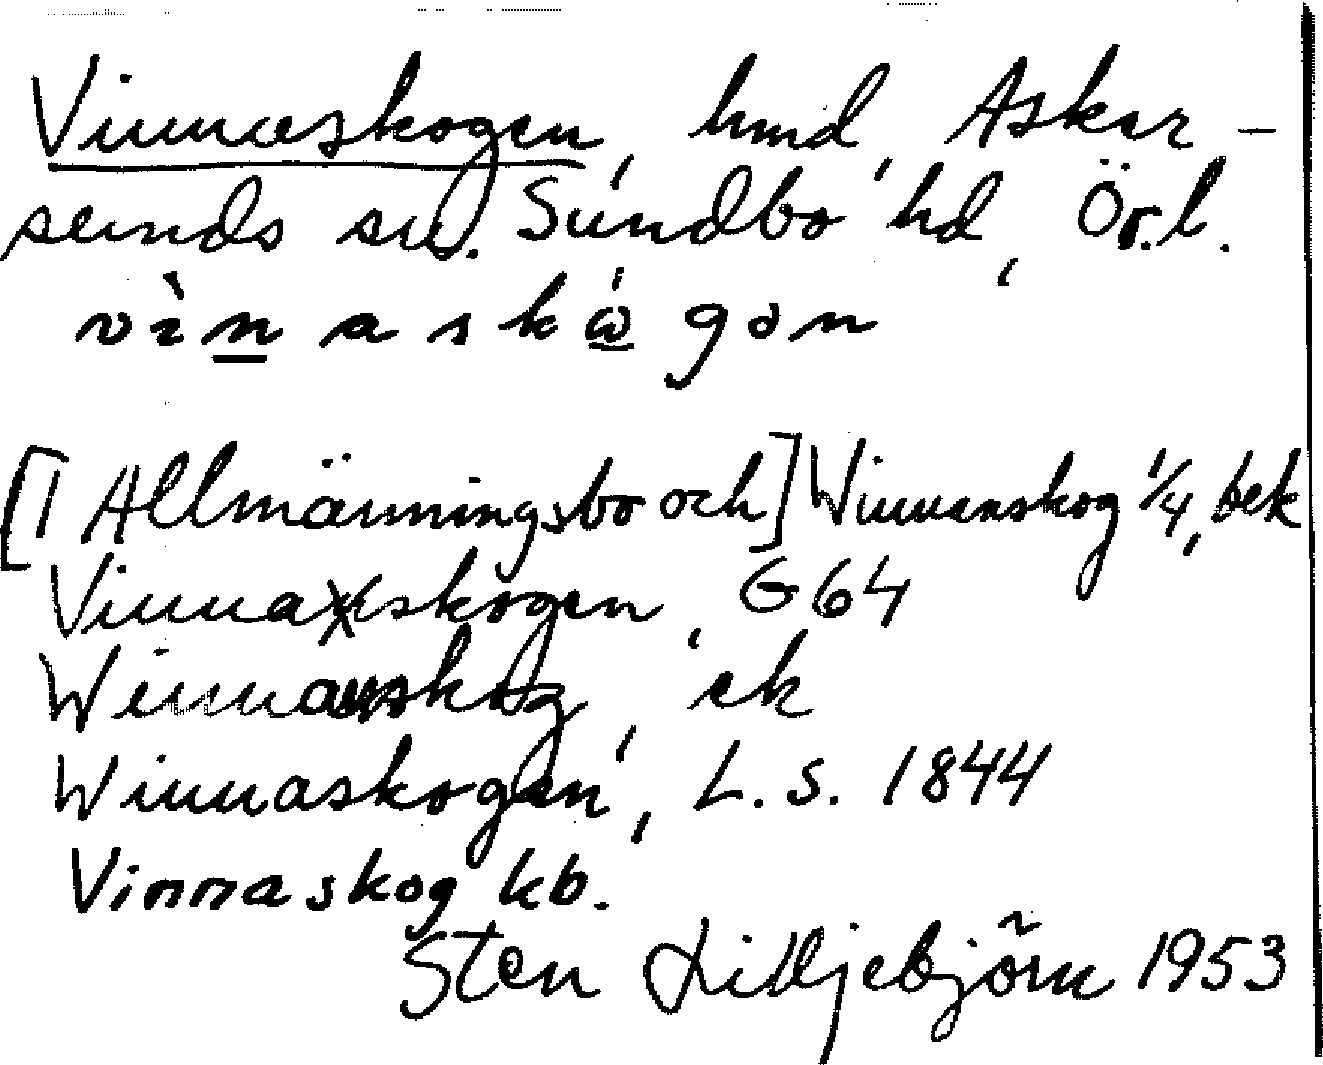 Vinnaskogen, hmd, Asker-
sunds sn. Sundbo hd, Ör.l.
vìnaskó̲gən
[I Allmänningsbo och] Winnanskog 1/4, bek
Vinnaskogen, G64
Winnanskog, ek
Winnaskogen, L. S. 1844
Vinnaskog kb.
Sten Lilljebjörn 1953